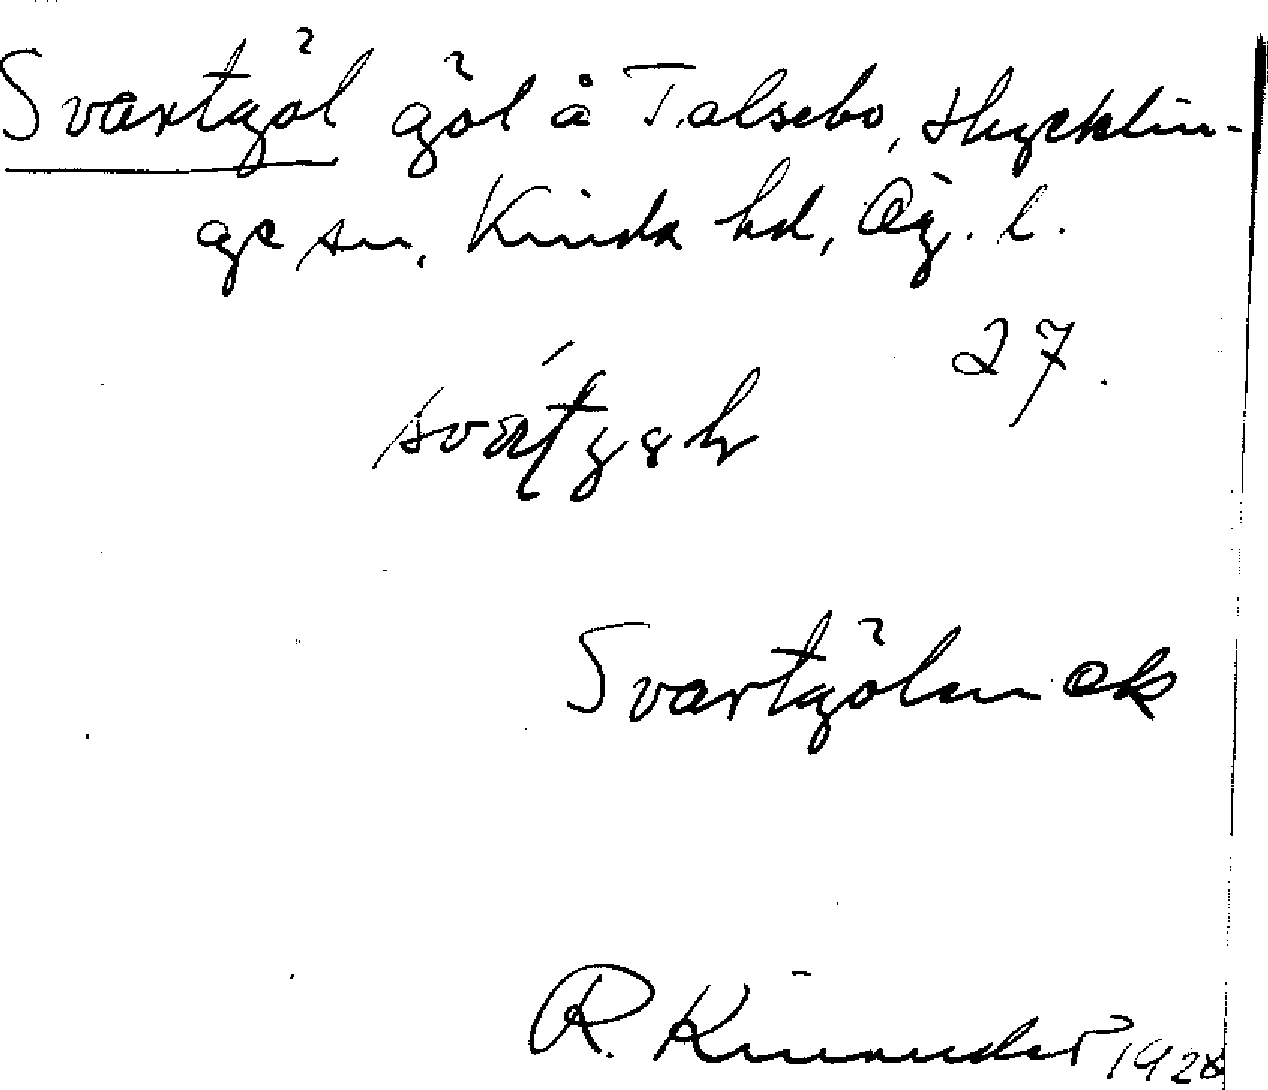 Svartgöl göl å Talsebo, Hycklin-
ge sn, Kinda hd, Ög. l.
27.
Svartgölen ek
R. Kinander 1928